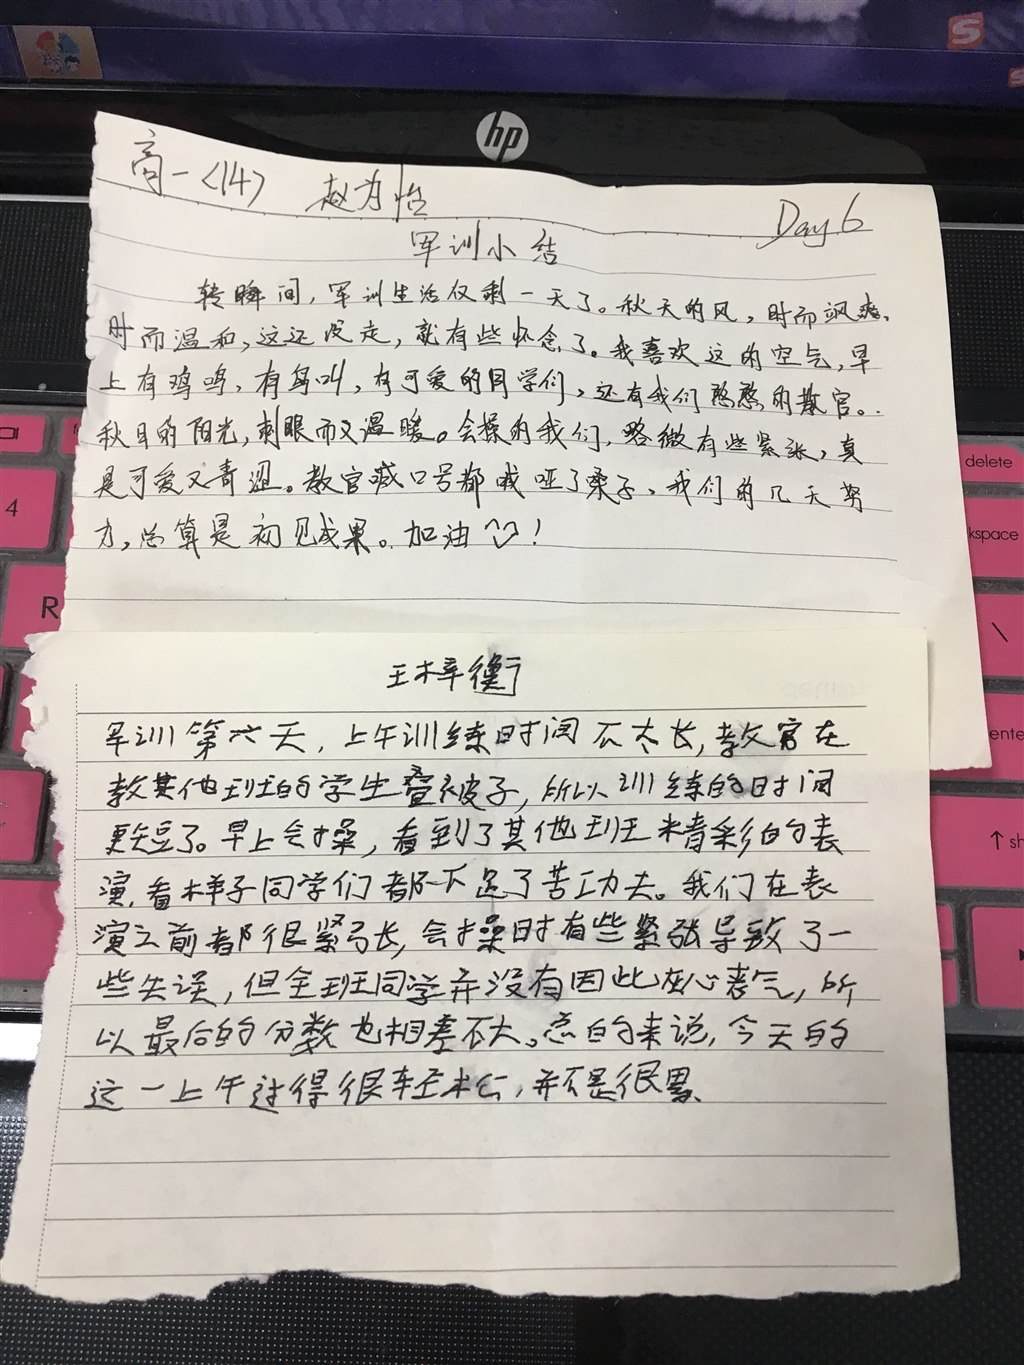 hp
高一<14> 赵为怡 Day 6
军训小结
转瞬间,军训生活仅剩一天了。秋天的风,时而飒爽、
时而温和,这还没走,就有些怀念了。我喜欢这的空气,早
上有鸡鸣,有鸟叫,有可爱的同学们,还有我们憨憨的教官。
秋日的阳光,刺眼而又温暖。会操的我们,略微有些紧张,真
是可爱又青涩。教官喊口号都喊哑了嗓子,我们的几天努
力,总算是初见成果。加油!
王梓衡
军训第六天,上午训练时间不太长,教官在
教其他班的学生叠被子,所以训练的时间
更短了。早上会操,看到了其他班精彩的表
演,看样子同学们都下足了苦功夫。我们在表
演之前都很紧张,会操时有些紧张导致了一
些失误,但全班同学并没有因此灰心丧气,所
以最后的分数也相差不大。总的来说,今天的
这一上午过得很轻松,并不是很累。
delete
kspace
4
R
\
enter
↑ sh